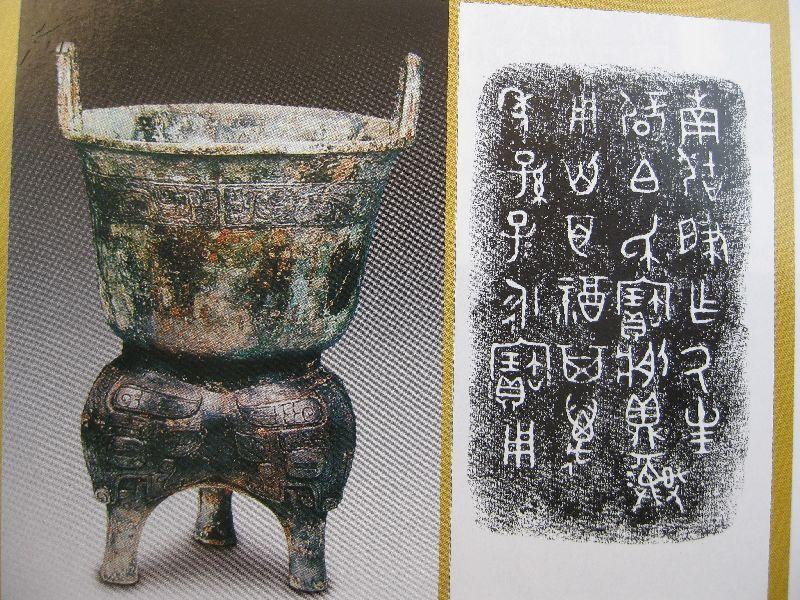 南姞肇乍氒皇
辟白氏寶彝
用匄百福其萬
年孫子永寶用